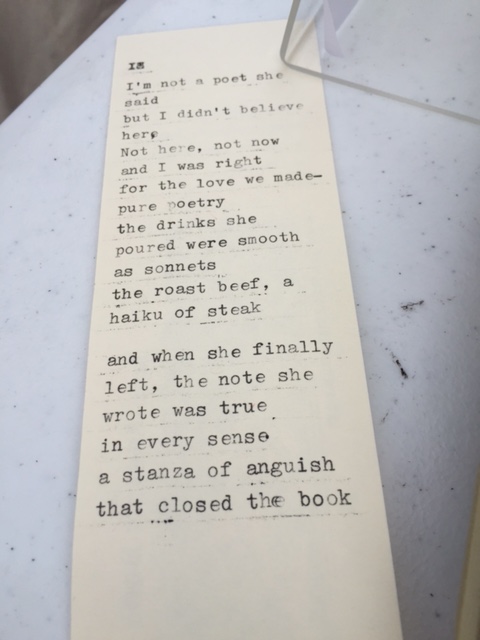 I'm not a poet she
said
but I didn't believe
here
Not here, not now
and I was right
for the love we made—
pure poetry
the drinks she
poured were smooth
as sonnets
the roast beef, a
haiku of steak
and when she finally
left, the note she
wrote was true
in every sense
a stanza of anguish
that closed the book